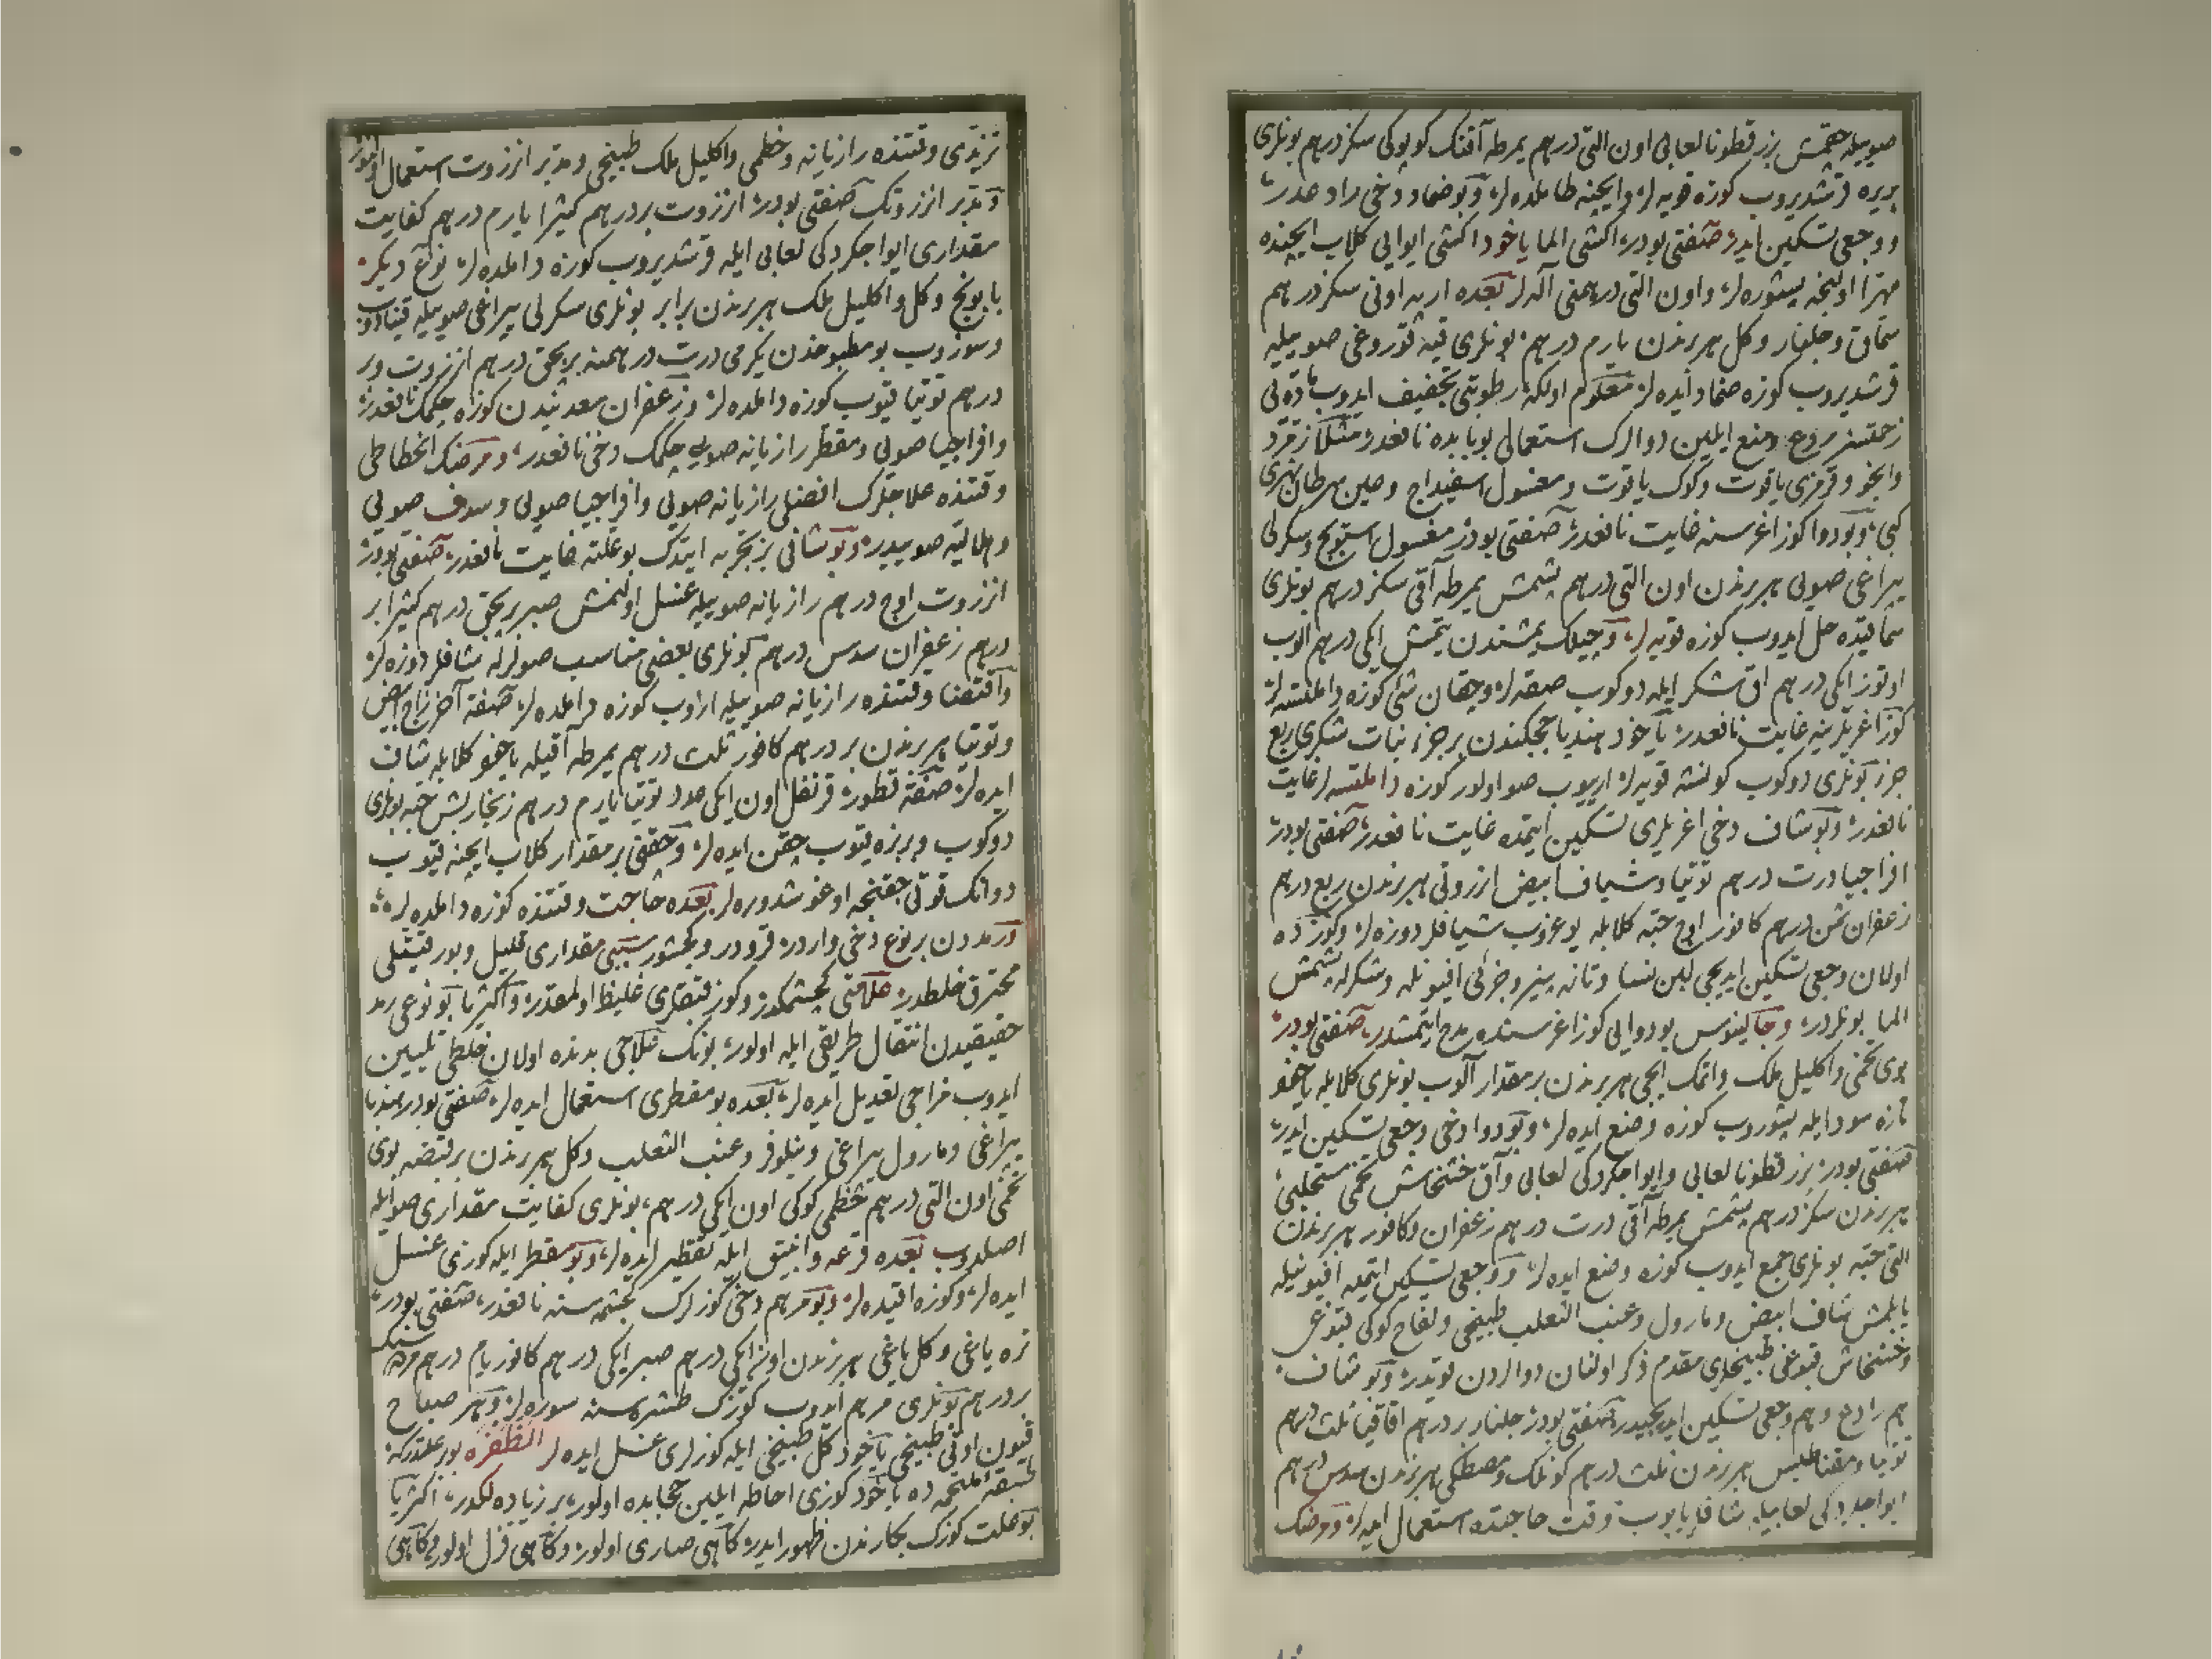 صوييله چقمش بزر قطونا لعابی اون التی درهم يمرطه آقنك كوپوكی سكز درهم بونلری
بريره قرشديروب كوزه قويه لر وايچنه طامله ده لر وبو ضماد دخی رادعدر
ووجعی تسكين ايدر صنعتی بودر اكشی الما ياخود اكشی ايوايی كلاب ايچنده
مهرّا اولنجه پيشوره لر واون التی درهمنی آله لر بعده اريه اونی سكز درهم
سماق وجلنار وكل هر برندن يارم درهم بونلری قيه قوروغی صوييله
قرشديروب كوزه ضماد ايده لر معلوم اوله كه رطوبتی تجفيف ايدوب ماده يی
زحمتسز ردع ومنع ايلين دوالرك استعمالی بوبابده نافعدر مثلا زمرّد
وانجو وقرمزی ياقوت وكوك ياقوت ومغسول اسفيداج وصين سرطان نهری
كبی وبو دوا كوز اغرسنه غايت نافعدر صنعتی بودر مغسول اسپوج وسكرلی
يپراغی صويی هر برندن اون التی درهم پشمش يمرطه آقی سكز درهم بونلری
سماقيده حل ايدوب كوزه قويه لر وچيلك يمشندن يتمش ايكی درهم الوب
اوتوز ايكی درهم اق شكر ايله دوكوب صقه لر وچقان شئی كوزه داملتسه لر
كوز اغريلرينه غايت نافعدر ياخود هندبا چيچكندن بر جزء نبات شكری ربع
جزء بونلری دوكوب كونشه قويه لر اريوب صو اولور كوزه داملتسه لر غايت
نافعدر وبو شاف دخی اغريلری تسكين ايتمده غايت نافعدر صنعتی بودر
افراجيا درت درهم توتيا وشياف ابيض انزروتی هر برندن ربع درهم
زعفران ثمن درهم كافور اوچ حبّه كلابله يوغروب شيافلر دوزه لر وكوزده
اولان وجعی تسكين ايديجی لبن نسا وتازه پينير وجزئی افيونله وشكرله پشمش
الما بونلردر وجالينوس بودوايی كوز اغرسنده مدح ايتمشدر صنعتی بودر
بوی تخمی واكليل ملك واتمك ايچی هر برندن بر مقدار آلوب بونلری كلابله ياخود
تازه سود ايله پشوروب كوزه وضع ايده لر وبو دوا دخی وجعی تسكين ايدر
صنعتی بودر بزر قطونا لعابی وايوا چكردكی لعابی وآق خشخاش تخمی مستحلبی
هر برندن سكز درهم پشمش يمرطه آقی درت درهم زعفران وكافور هر برندن
التی حبّه بونلری جمع ايدوب كوزه وضع ايده لر ووجعی تسكين ايتميه افيونيله
ياپلمش شاف ابيض ومارول وعنب الثعلب طبيخی ولفاح كوكی قبوغی
وخشخاش قبوغی طبيخلری مقدم ذكر اولنان دوالردن قويدر وبو شاف
هم رادع وهم وجعی تسكين ايديجيدر صنعتی بودر جلنار بر درهم اقاقيا ثلث درهم
توتيا ومقناطيس هر برندن ثلث درهم كونلك ومصطكی هر برندن سدس درهم
ايوا چكردكی لعابيله شافلر ياپوب وقت حاجتده استعمال ايده لر ومرضك
تزيّدی وقتنده رازيانه وخطمی واكليل ملك طبيخی ومدبّر انزروت استعمال اولنور
ومدبّر انزروتك صنعتی بودر انزروت بر درهم كثيرا يارم درهم كفايت
مقداری ايوا چكردكی لعابی ايله قرشديروب كوزه داملده لر نوع ديكر
بابونج وكل واكليل ملك هر برندن برابر بونلری سكرلی يپراغی صوييله قينادوب
وسوزوب بو مطبوخدن يكرمی درت درهمنه بر بچق درهم انزروت وبر
درهم توتيا قيوب كوزه داملده لر وزعفران معدنيدن كوزه چكمك نافعدر
وافراجيا صويی ومقطّر رازيانه صويی چكمك دخی نافعدر ومرضك انحطاطی
وقتنده علاجلرك افضلی رازيانه صويی وافراجيا صويی وسدف صويی
وهلاليه صوييدر وبو شافی بز تجربه ايتدك بو علته غايت نافعدر صنعتی بودر
انزروت اوچ درهم رازيانه صوييله غسل اولنمش صبر بر بچق درهم كثيرا بر
درهم زعفران سدس درهم بونلری بعضی مناسب صولرله شافلر دوزه لر
واقتضا وقتنده رازيانه صوييله ازوب كوزه داملده لر صنعة آخر زاج ابيض
وتوتيا هر برندن بر درهم كافور ثلث درهم يمرطه آقيله ياخود كلابله شاف
ايده لر صنعة قطور قرنفل اون ايكی عدد توتيا يارم درهم زنجار بش حبّه بونلری
دوكوب وبربزه قيوب چقن ايده لر وچقنی بر مقدار كلاب ايچنه قيوب
دوانك قوتی چقنجه اوغوشدوره لر بعده حاجت وقتنده كوزه داملده لر
ورمددن بر نوع دخی واردر قرودر وكجشور سببی مقداری قليل وبورقيتلی
محترق خلطدر علامتی كجشمكدر وكوز قپقلری غليظ اولمقدر واكثريا بو نوعی رمد
حقيقيدن انتقال طريقی ايله اولور بونك علاجی بدنده اولان خلطی تليين
ايدوب مزاجی تعديل ايده لر بعده بو مقطری استعمال ايده لر صنعتی بودر هندبا
يپراغی ومارول يپراغی ونيلوفر وعنب الثعلب وكل هر برندن بر قبضه بوی
تخمی اون التی درهم خطمی كوكی اون ايكی درهم بونلری كفايت مقداری صو ايله
اصلدوب بعده قرعه وانبيق ايله تقطير ايده لر وبو مقطر ايله كوزی غسل
ايده لر وكوزه اقيده لر وبو مرهم دخی كوزلرك كجشمه سنه نافعدر صنعتی بودر
تره ياغی وكل ياغی هر برندن اوتوز ايكی درهم صبر ايكی درهم كافور يارم درهم مرده سنك
بر درهم بونلری مرهم ايدوب كوزك طشره سنه سوره لر وهر صباح
قيون اوتی طبيخی ياخود كل طبيخی ايله كوزلری غسل ايده لر الظفره بور علتدركه
طبقۀ ملتحمه ده ياخود كوزی احاطه ايلين حجابده اولور بر زياده لكدر اكثريا
بو علت كوزك پكارندن ظهور ايدر كاهی صاری اولور وكاهی قزل اولور وكاهی